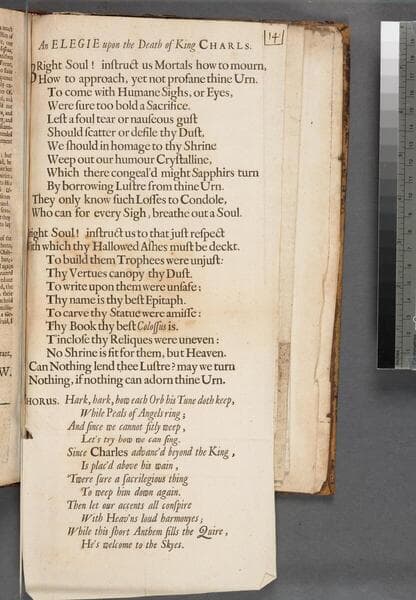 14
An ELEGIE upon the Death of King CHARLS.
Right Soul! inſtruct us Mortals how to mourn,
How to approach, yet not profane thine Urn.
To come with Humane Sighs, or Eyes,
Were ſure too bold a Sacrifice.
Leſt a foul tear or nauſeous guſt
Should ſcatter or defile thy Duſt,
We ſhould in homage to thy Shrine
Weep out our humour Cryſtalline,
Which there congeal'd might Sapphirs turn
By borrowing Luſtre from thine Urn.
They only know ſuch Loſſes to Condole,
Who can for every Sigh, breathe out a Soul.
ight Soul! inſtruct us to that juſt reſpect
ith which thy Hallowed Aſhes muſt be deckt.
To build them Trophees were unjuſt:
Thy Vertues canopy thy Duſt.
To write upon them were unſafe;
Thy name is thy beſt Epitaph.
To carve thy Statue were amiſſe:
Thy Book thy beſt Coloſſus is.
T'incloſe thy Reliques were uneven:
No Shrine is fit for them, but Heaven.
Can Nothing lend thee Luſtre? may we turn
Nothing, if nothing can adorn thine Urn.
HORUS. Hark, hark, how each Orb his Tune doth keep,
While Peals of Angels ring;
And ſince we cannot fitly weep,
Let's try how we can ſing.
Since Charles advanc'd beyond the King,
Is plac'd above his wain,
'Twere ſure a ſacrilegious thing
To weep him down again.
Then let our accents all conſpire
With Heav'ns loud harmonyes;
While this ſhort Anthem fills the Quire,
He's welcome to the Skyes.